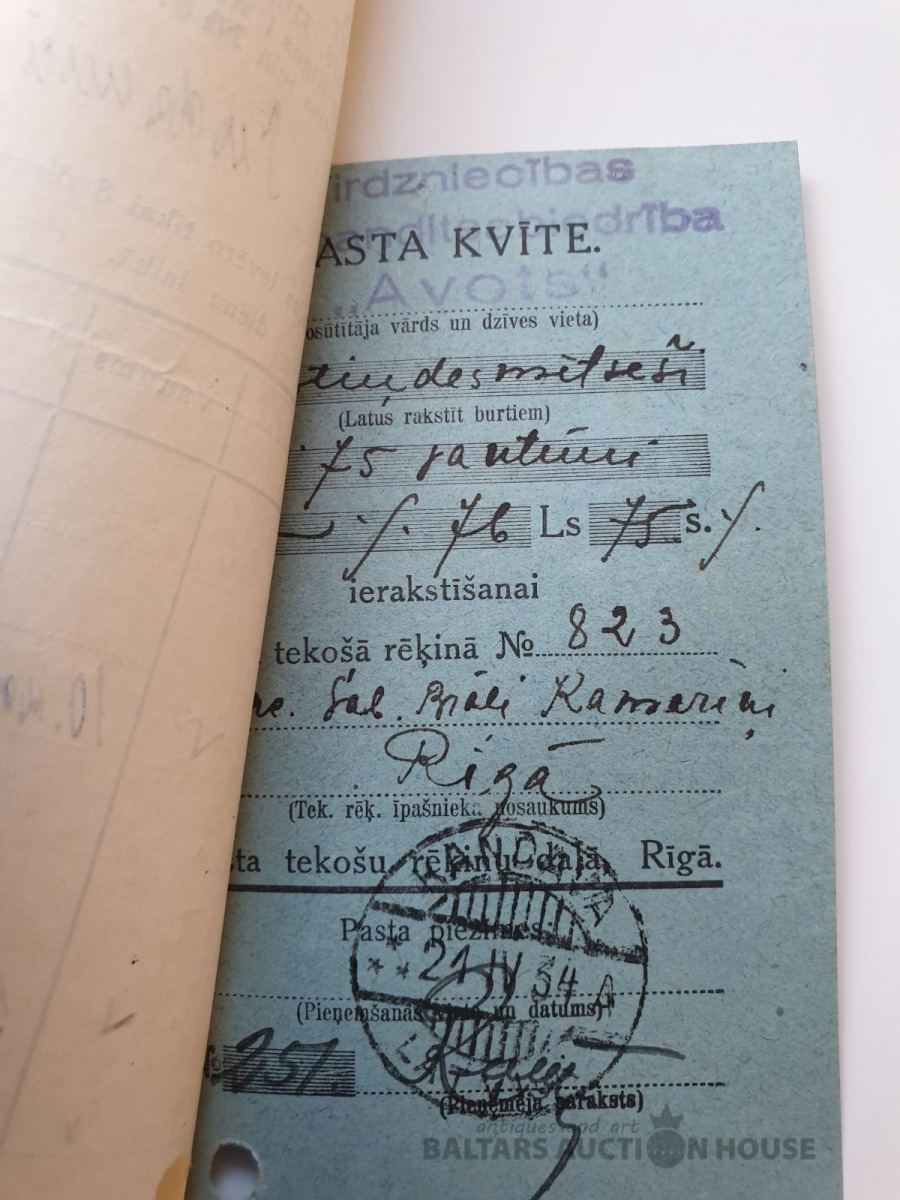 irdzniecības
anditsabiedrība
ASTA KVĪTE.
„Avots"
osūtītāja vārds un dzīves vieta)
tiņdesmitseši
(Latus rakstīt burtiem)
75 santimi
76 Ls 75 s.
ierakstīšanai
tekošā rēķinā № 823
Sab. Brāļi Kamariņi
Rīgā
(Tek. rēķ. īpašnieka nosaukums)
sta tekošu rēķinu daļā, Rīgā.
KANDAVA
Pasta piezīmes:
21 IV 34 A
(Pieņemšanas vieta un datums)
951.
(Pieņēmēja paraksts)
antiques and art
BALTARS AUCTION HOUSE
ievēro tikai 8
dienu laikā.